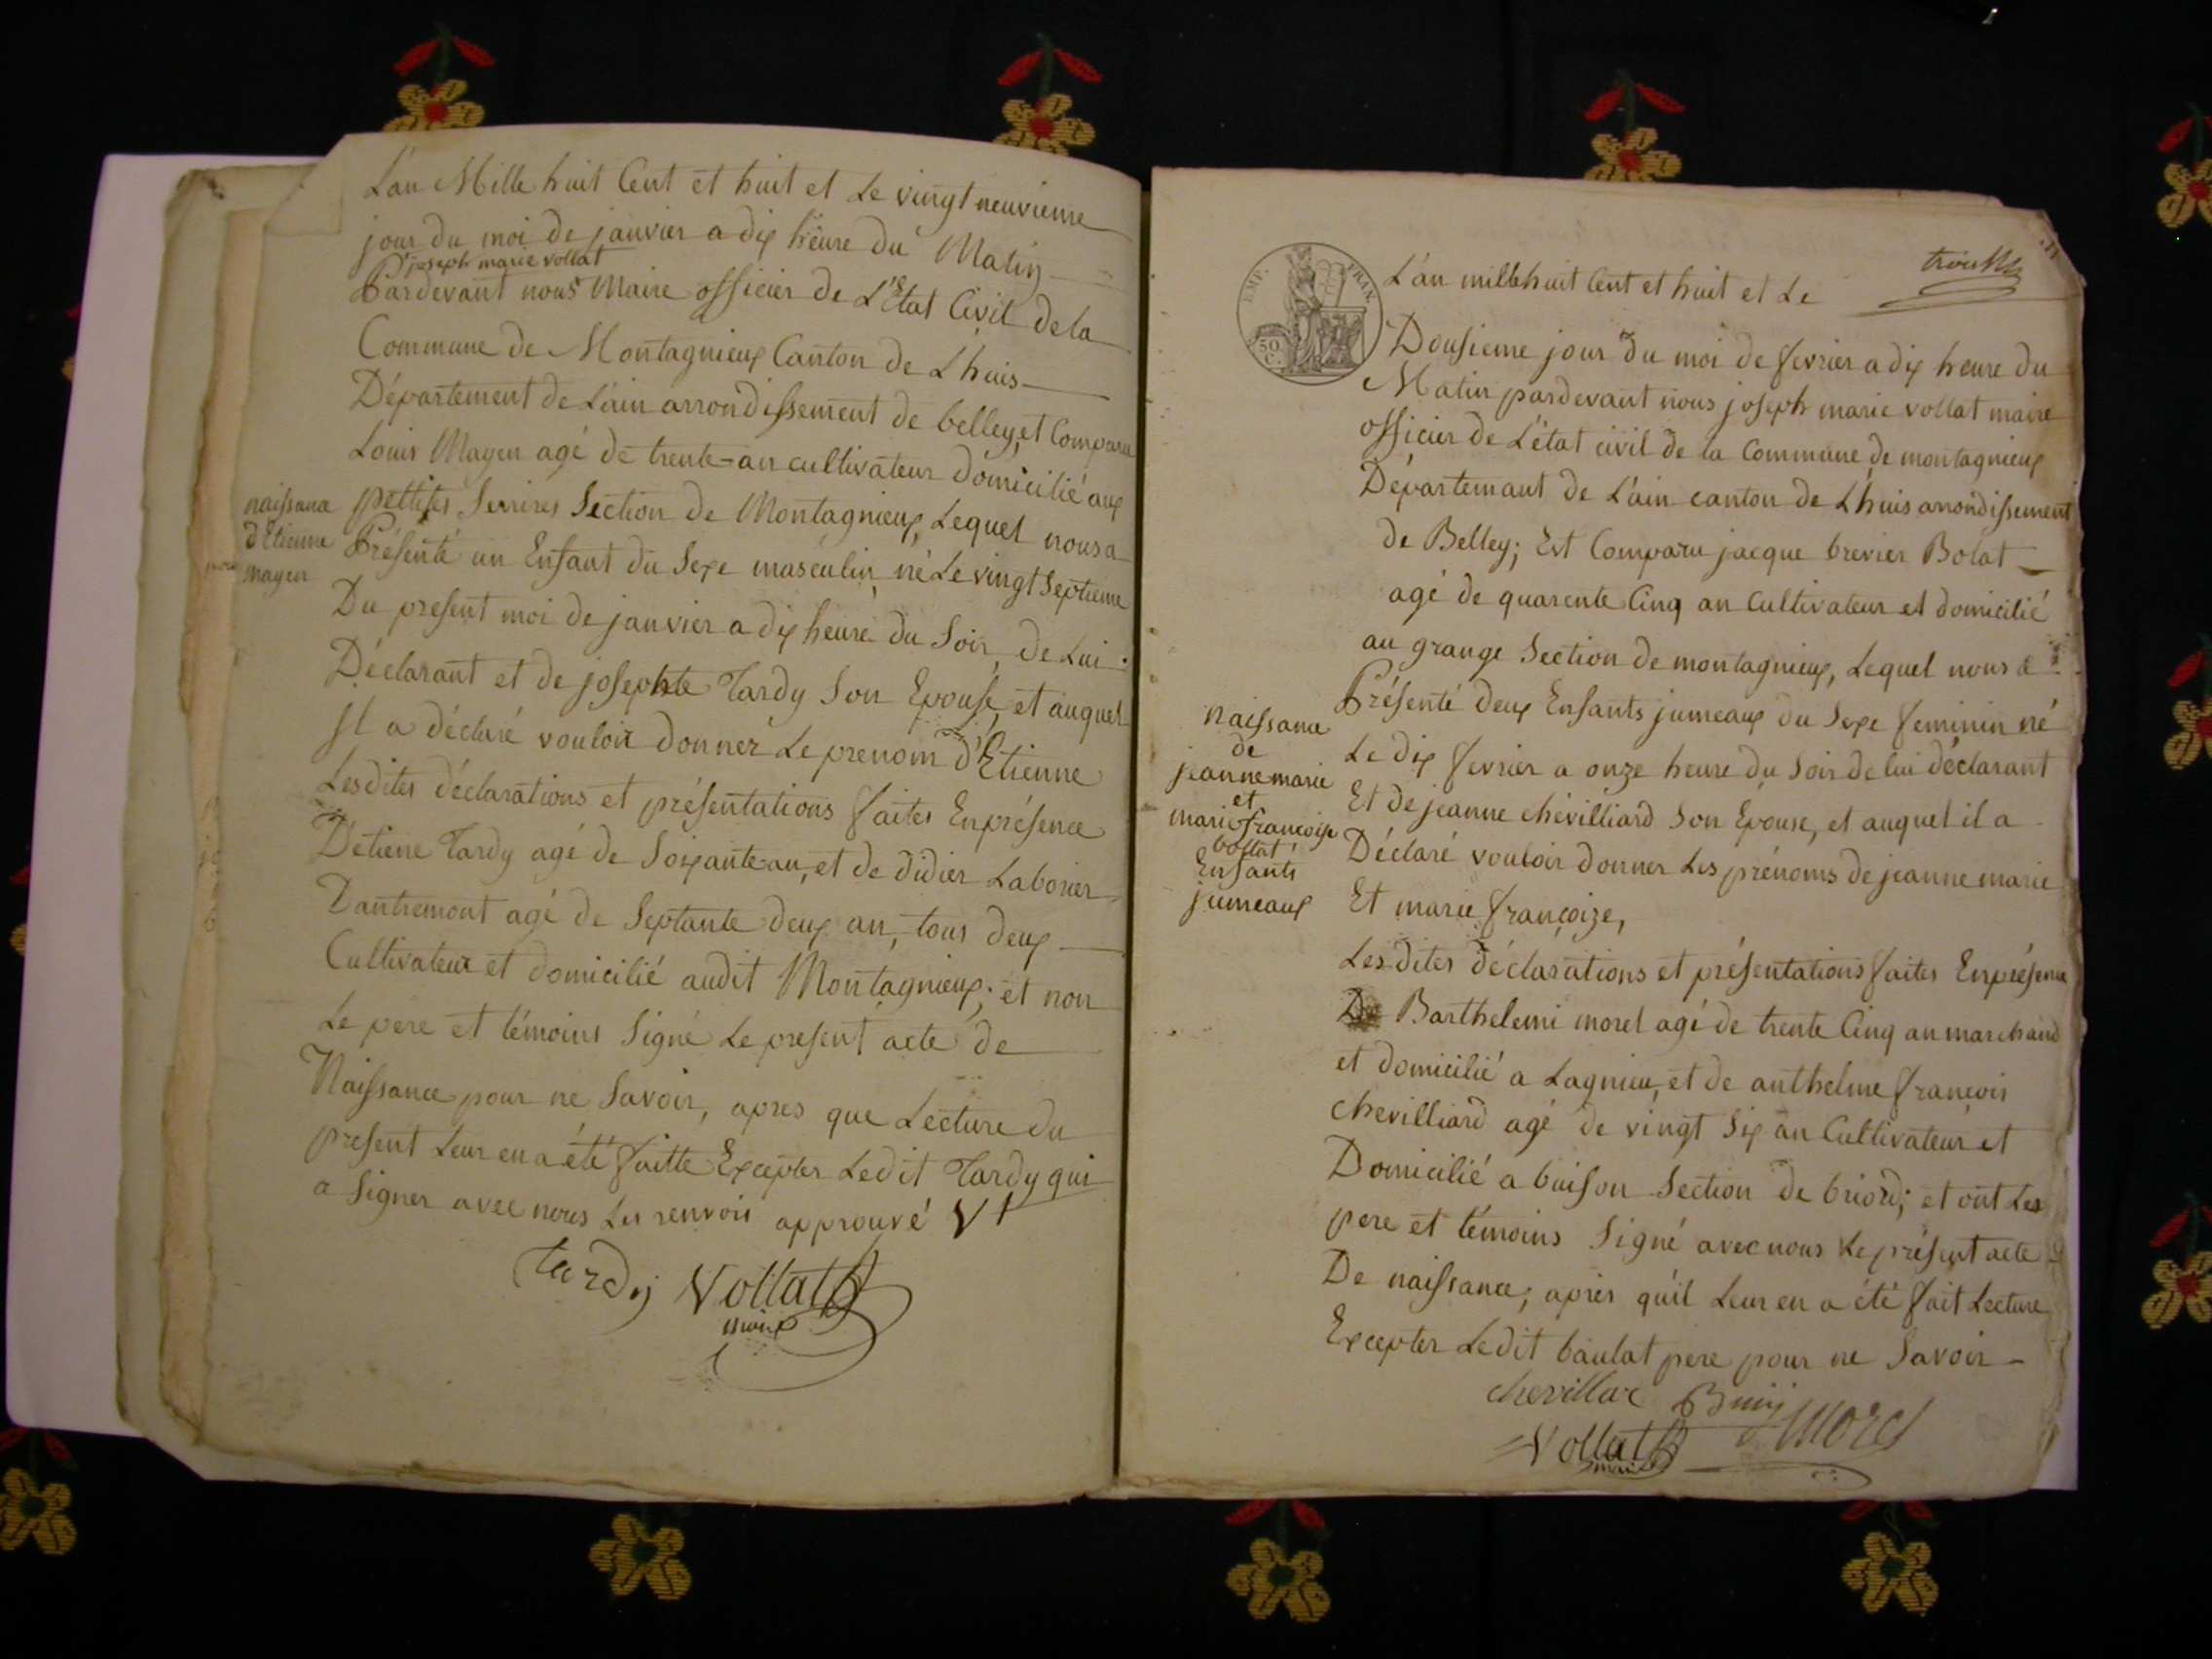 L'an Mille huit Cent et huit et Le vingt neuvieme
jour du moi de janvier a dix heure du Matin
joseph marie vollat
Pardevant nous Maire officier de L'Etat Civil de la
Commune de Montagnieux Canton de Lhuis
Département de L'ain arrondissement de belley, et Comparu
Louis Mayen agé de trente-an cultivateur domicilié aux
pettites Serrires Section de Montagnieux, Lequel nous a
Présenté un Enfant du Sexe masculin né Le vingt Septieme
Du present moi de janvier a dix heure du Soir, de Lui
Déclarant et de josephte Tardy Son Epouse, et auquel
Il a déclaré vouloir donner Le prenom d'Etienne
Lesdites déclarations et présentations faites En présence
D'étiene Tardy agé de Soixante an, et de didier Laborier
Dantremont agé de Septante deux an, tous deux
Cultivateur et domicilié audit Montagnieux; et non
Le pere et témoins Signé Le present acte de
Naissance pour ne Savoir, apres que Lecture du
present Leur en a été faitte Excepter Ledit Tardy qui
a Signer avec nous Les renvois approuvé V t
tardy Vollat
maire
naissance
d'Etienne
mayen
EMP. FRAN.
50 C.
L'an mille huit Cent et huit et Le
Dousieme jour du moi de fevrier a dix heure du
Matin pardevant nous joseph marie vollat maire
officier de L'état civil de la Commune de montagnieux
Départemant de L'ain canton de Lhuis arrondissement
de Belley; Est Comparu jacque brevier Bolat
agé de quarente Cinq an Cultivateur et domicilié
au grange Section de montagnieux, Lequel nous a
Présenté deux Enfants jumeaux du Sexe feminin né
Le dix fevrier a onze heure du Soir de lui déclarant
Et de jeanne chevilliard Son Epouse, et auquel il a
Déclaré vouloir donner Les prénoms de jeanne marie
Et marie françoize,
Lesdites déclarations et présentations faites En présence
De Barthelemi morel agé de trente Cinq an marchand
et domicilié a Lagnieu, et de anthelme françois
chevilliard agé de vingt Six an Cultivateur et
Domicilié a buison Section de briord; et ont Les
pere et témoins Signé avec nous Le présent acte
De naissance; aprés qu'il Leur en a été fait Lecture
Excepter Ledit baulat pere pour ne Savoir
chevillar morel
Vollat
maire
naissance
de
jeanne marie
et
marie françoise
bollat
Enfants
jumeaux